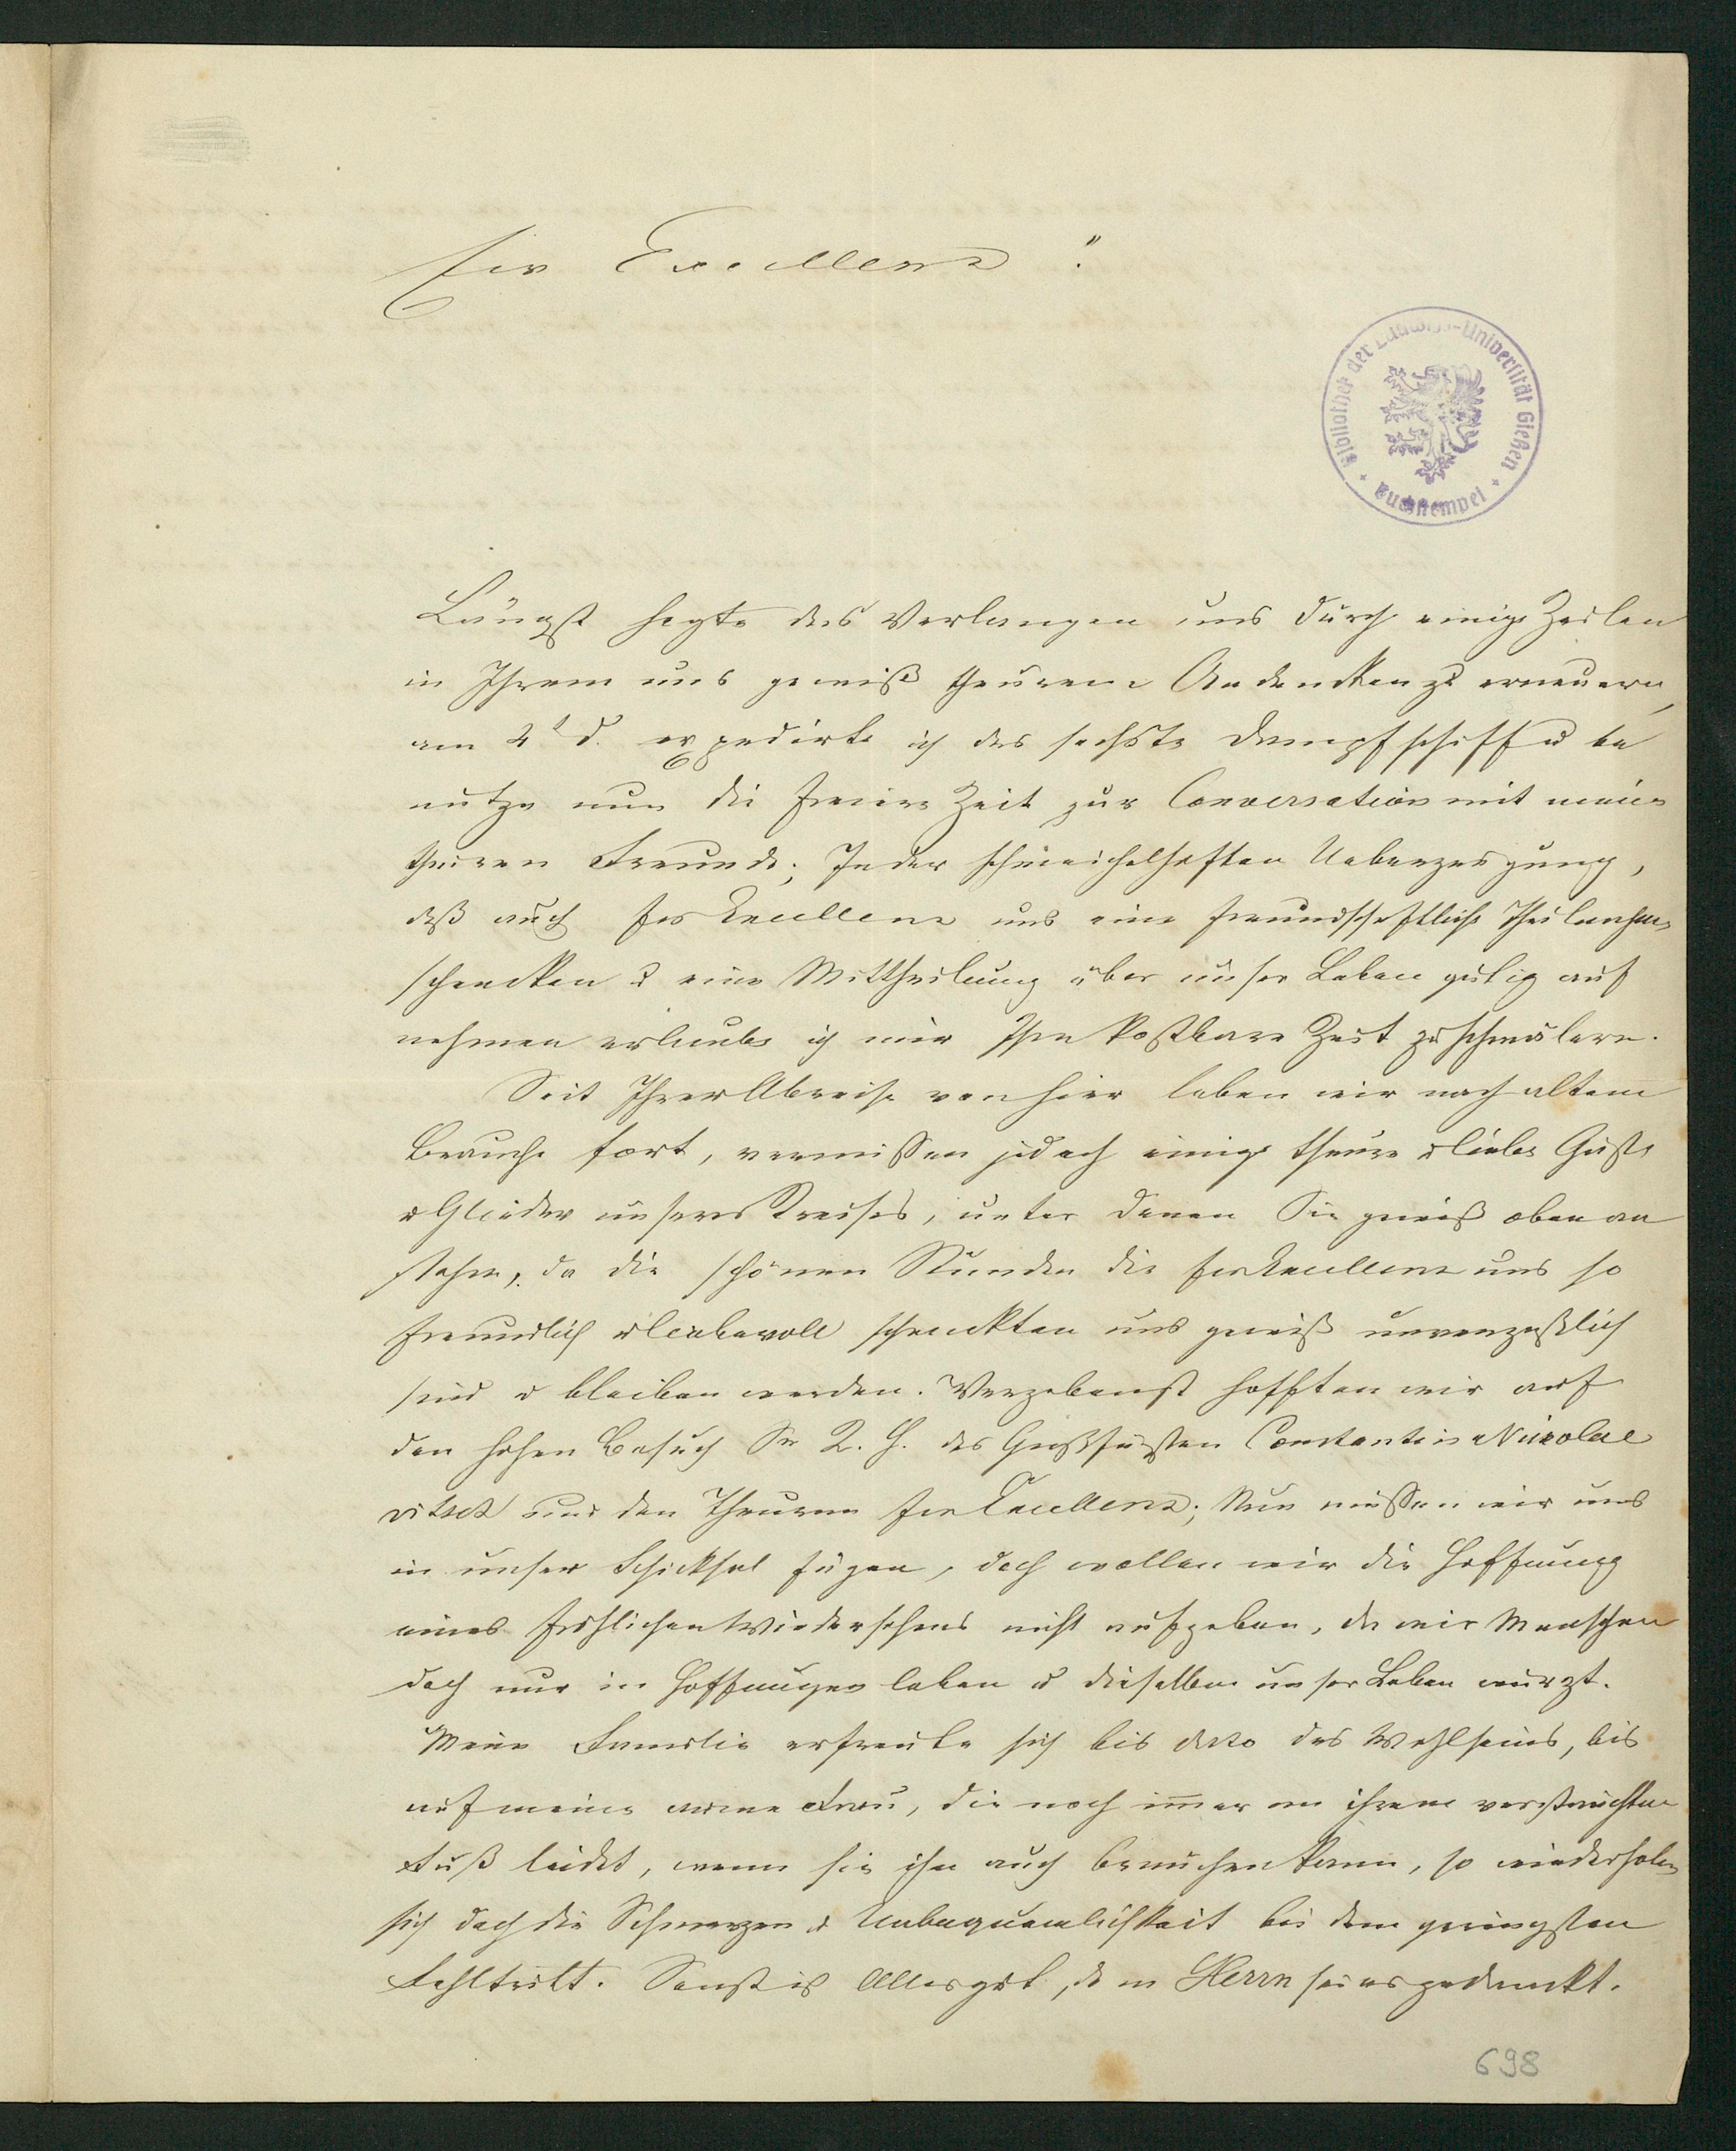 Ew Excellenz!
Bibliothek der Ludwigs-Universität Gießen
Buchstempel
Längst hegte das Verlangen uns durch einige Zeilen
in Ihrem uns gewiß theuren Andencken zu erneuern,
am 2t d. expedirte ich das sechste Dampfschiff u be
nutze nun die freiere Zeit zur Conversation mit meinen
theuren Freunde; In der schmeichelhaften Ueberzeugung,
daß auch Ew Excellenz uns eine freundschaftliche Theilnahme
schencken & eine Mittheilung über unser Leben gütig auf
nehmen erlaube ich mir Ihre kostbare Zeit zu schmälern.
Seit Ihrer Abreise von hier leben wir nach altem
Brauche fort, vermissen jedoch einige theure & liebe Gäste
& Glieder unsers Kreises, unter denen Sie gewiß oben an
stehen, da die schönen Stunden die Ew Excellenz uns so
freundlich & liebevoll schenckten uns gewiß unvergeßlich
sind & bleiben werden. Vergebenst hofften wir auf
den hohen Besuch Sr K. H. des Großfürsten Constantin Nicolae
vitsch und den Theuren Ew Excellenz; Nun müssen wir uns
in unser Schicksal fügen, doch wollen wir die Hoffnung
eines fröhlichen Wiedersehens nicht aufgeben, da wir Menschen
doch nur in Hoffnungen leben & dieselben unser Leben würzt.
Meine Familie erfreute sich bis dato des Wohlseins, bis
auf meine arme Frau, die noch immer an ihrem verstauchten
Fuß leidet, wenn sie ihn auch brauchen kann, so wiederholen
sich doch die Schmerzen & Unbequemlichkeit bei dem geringsten
Fehltritt. Sonst ist Alles gut, dem Herrn sei es gedanckt.
698